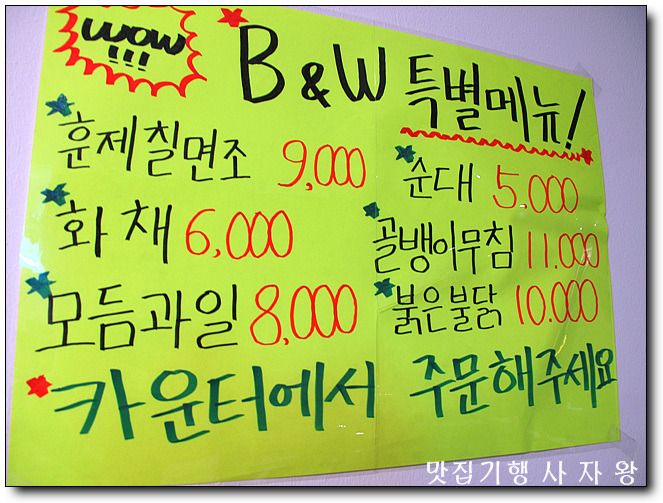 WOW
!!!
B & W 특별메뉴!
훈제칠면조 9,000
화채 6,000
모듬과일 8,000
순대 5.000
골뱅이무침 11.000
붉은불닭 10.000
카운터에서 주문해주세요
맛집기행사자왕